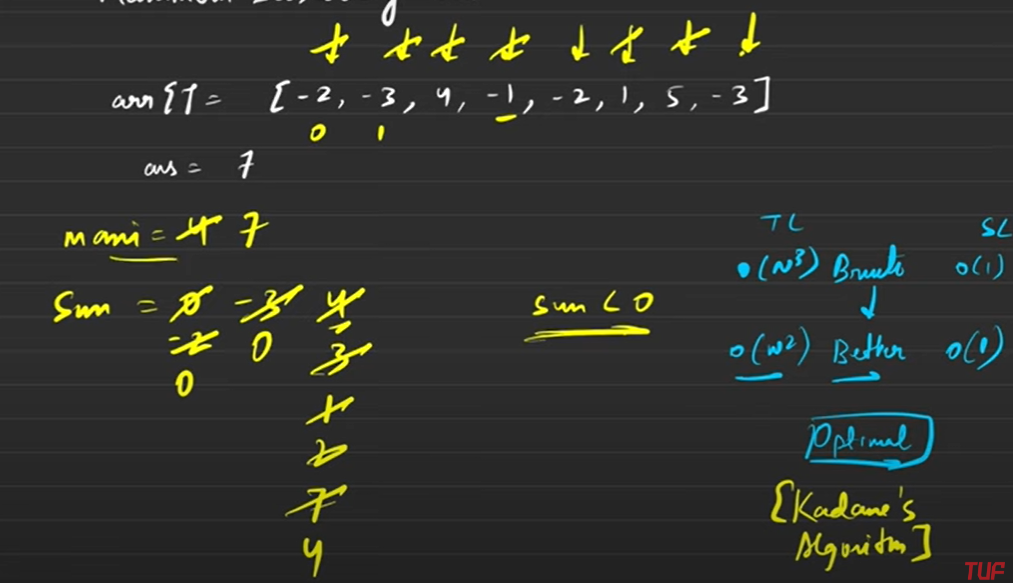 arr[] = [-2, -3, 4, -1, -2, 1, 5, -3]
0 1
ans = 7
maxi = 4 7
Sum = 0 -3 4
-2 0 3
0
1
2
7
4
sum < 0
TC SC
O(N³) Brute O(1)
O(N²) Better O(1)
Optimal
[Kadane's
Algorithm]
TUF